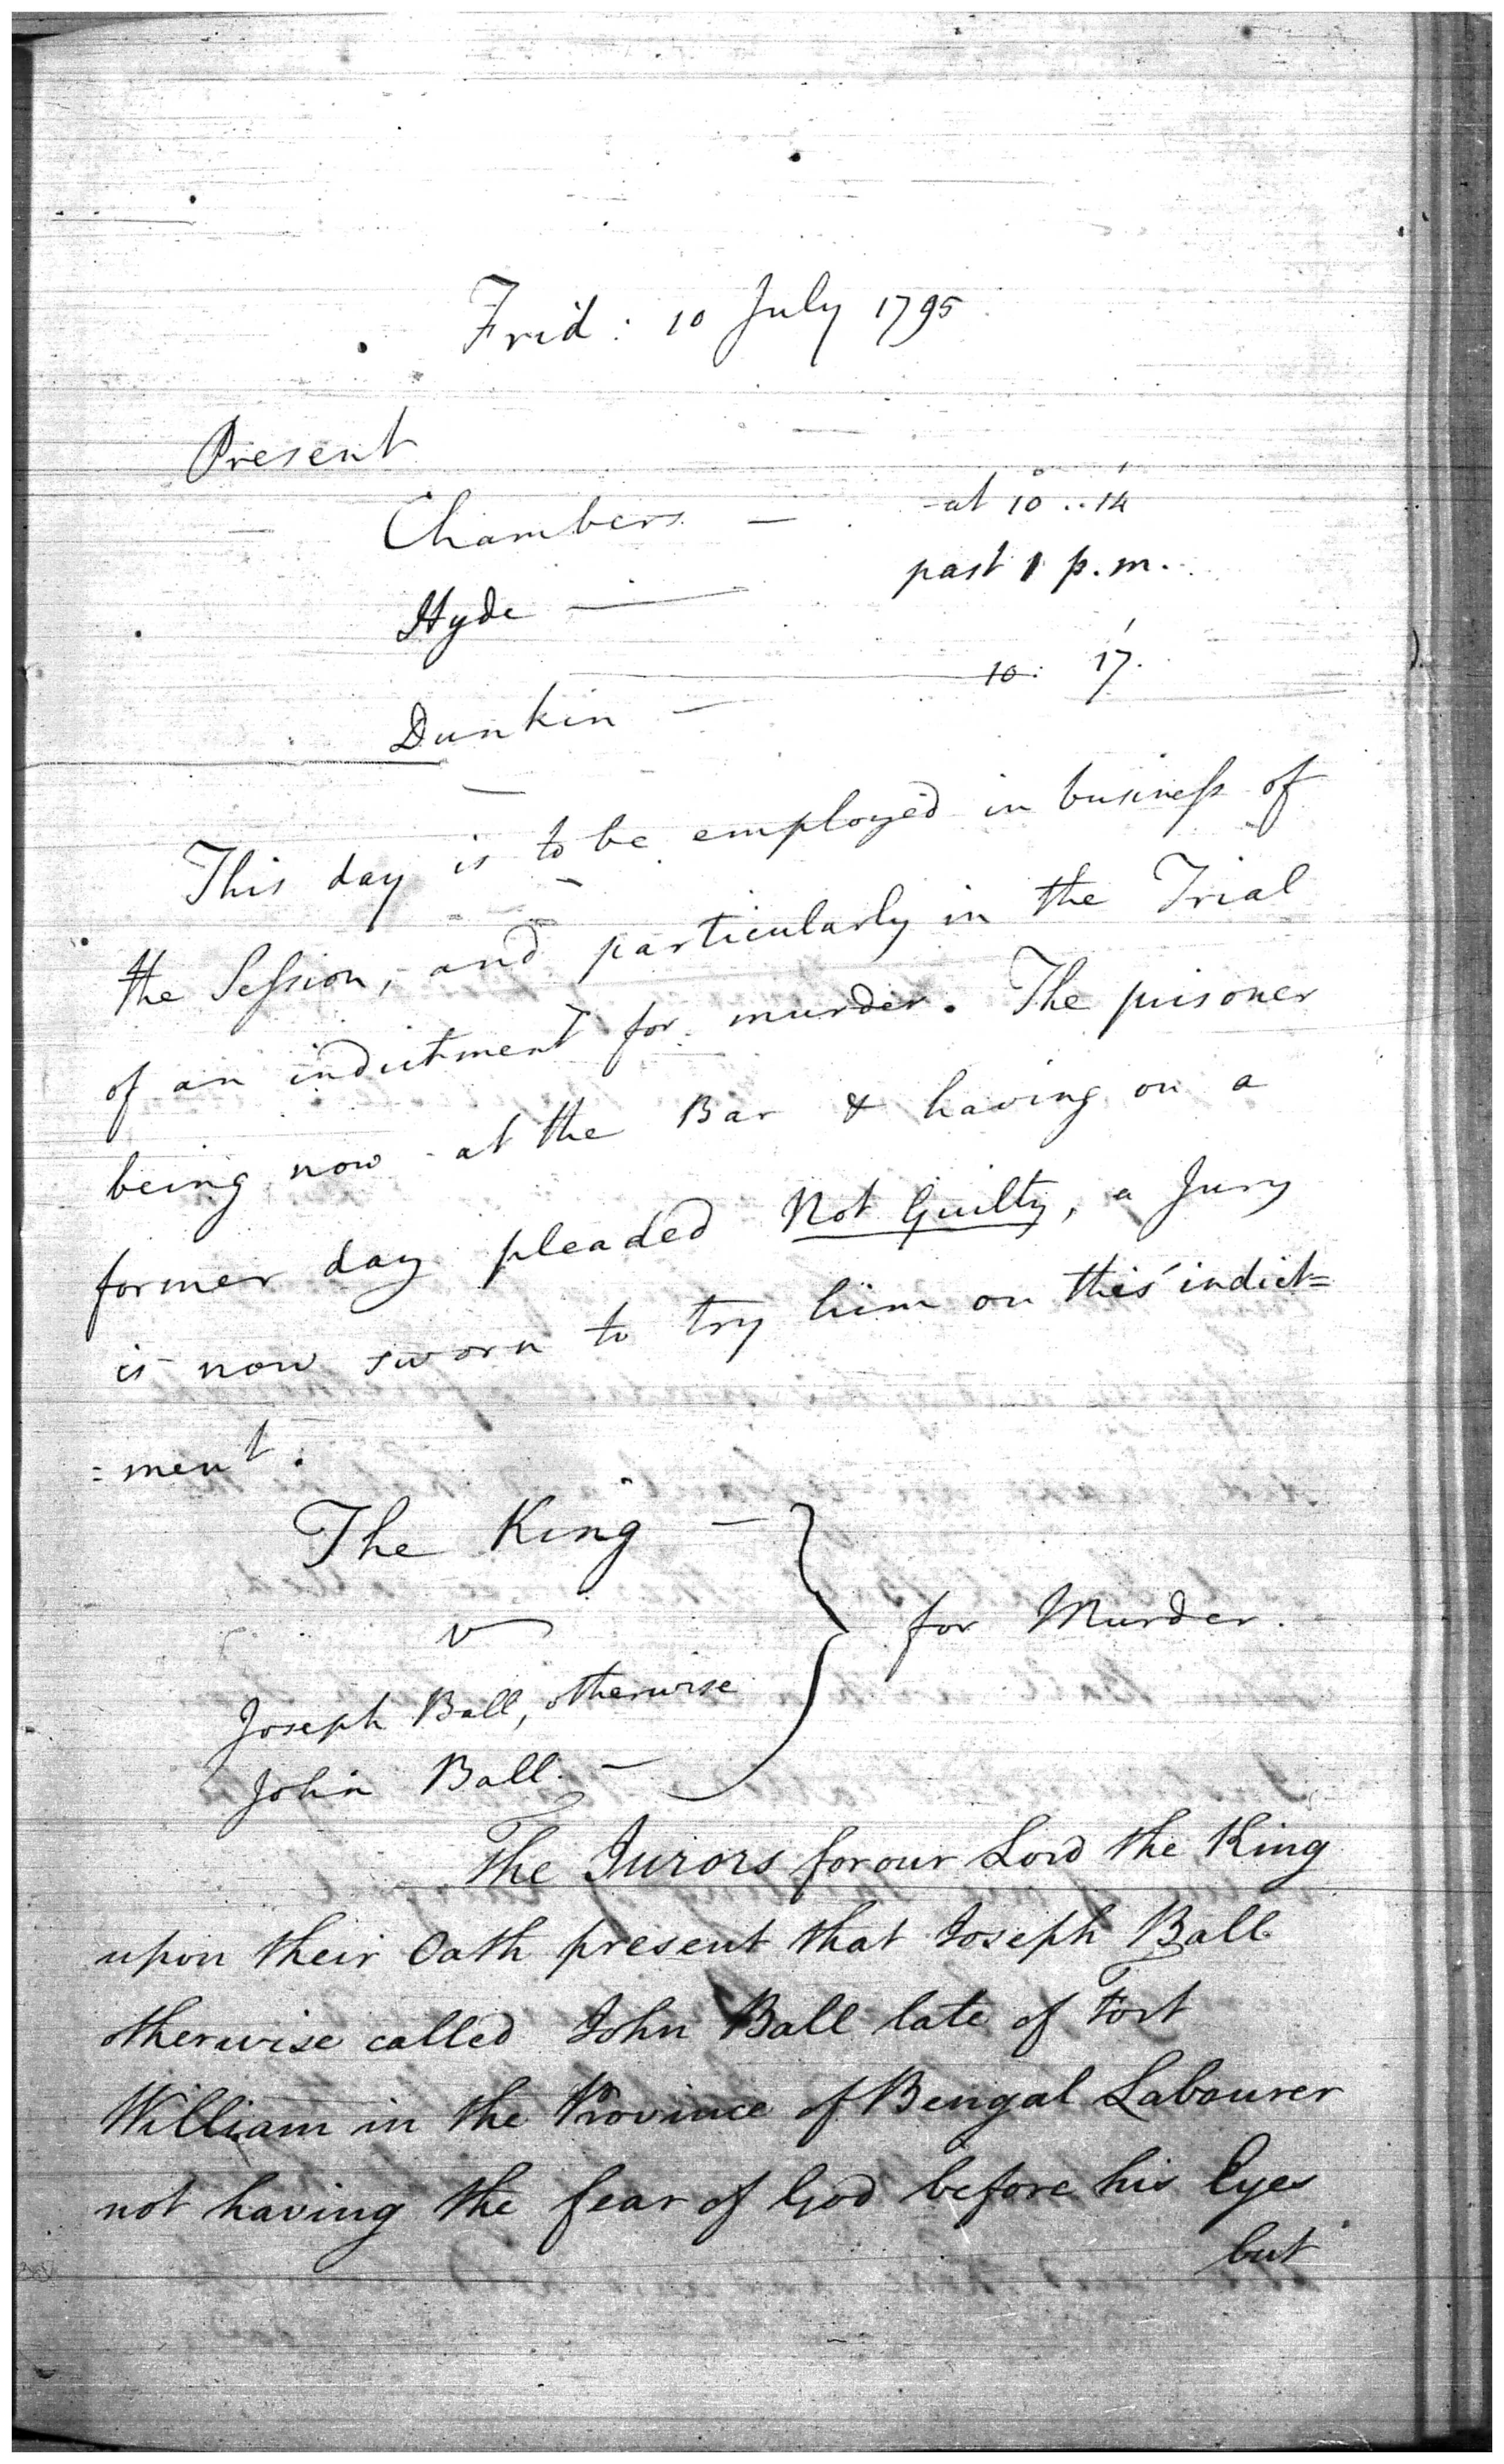 Frid: 10 July 1795
Present
Chambers — at 10° .. 14'
Hyde — past 1 p.m.
Dunkin — 10: 17'.
This day is to be employed in business of
the Session, and particularly in the Trial
of an indictment for murder. The prisoner
being now at the Bar & having on a
former day pleaded Not Guilty, a Jury
is now sworn to try him on this indict=
=ment.
The King —
v
for Murder.
Joseph Ball, otherwise
John Ball. —
The Jurors for our Lord the King
upon their Oath present that Joseph Ball
otherwise called John Ball late of Fort
William in the Province of Bengal Labourer
not having the fear of God before his Eyes
but